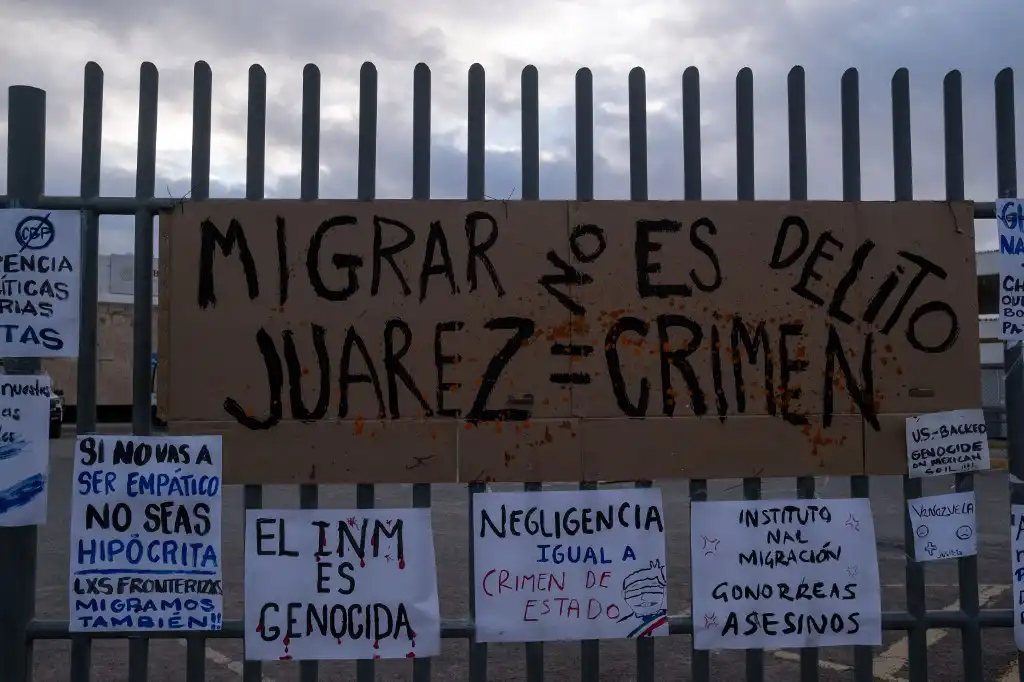 MIGRAR NO ES DELITO
JUAREZ = CRIMEN
CBP
TENCIA
LÍTICAS
RIAS
TAS
nuestes
as
SI NO VAS A
SER EMPÁTICO
NO SEAS
HIPÓCRITA
LXS FRONTERIZXS
MIGRAMOS
TAMBIÉN!!
EL INM
ES
GENOCIDA
NEGLIGENCIA
IGUAL A
CRIMEN DE
ESTADO
INSTITUTO
NAL
MIGRACIÓN
GONORREAS
ASESINOS
U.S.-BACKED
GENOCIDE
ON MEXICAN
SOIL
VENEZUELA
NA
CH
QUE
BO
PA